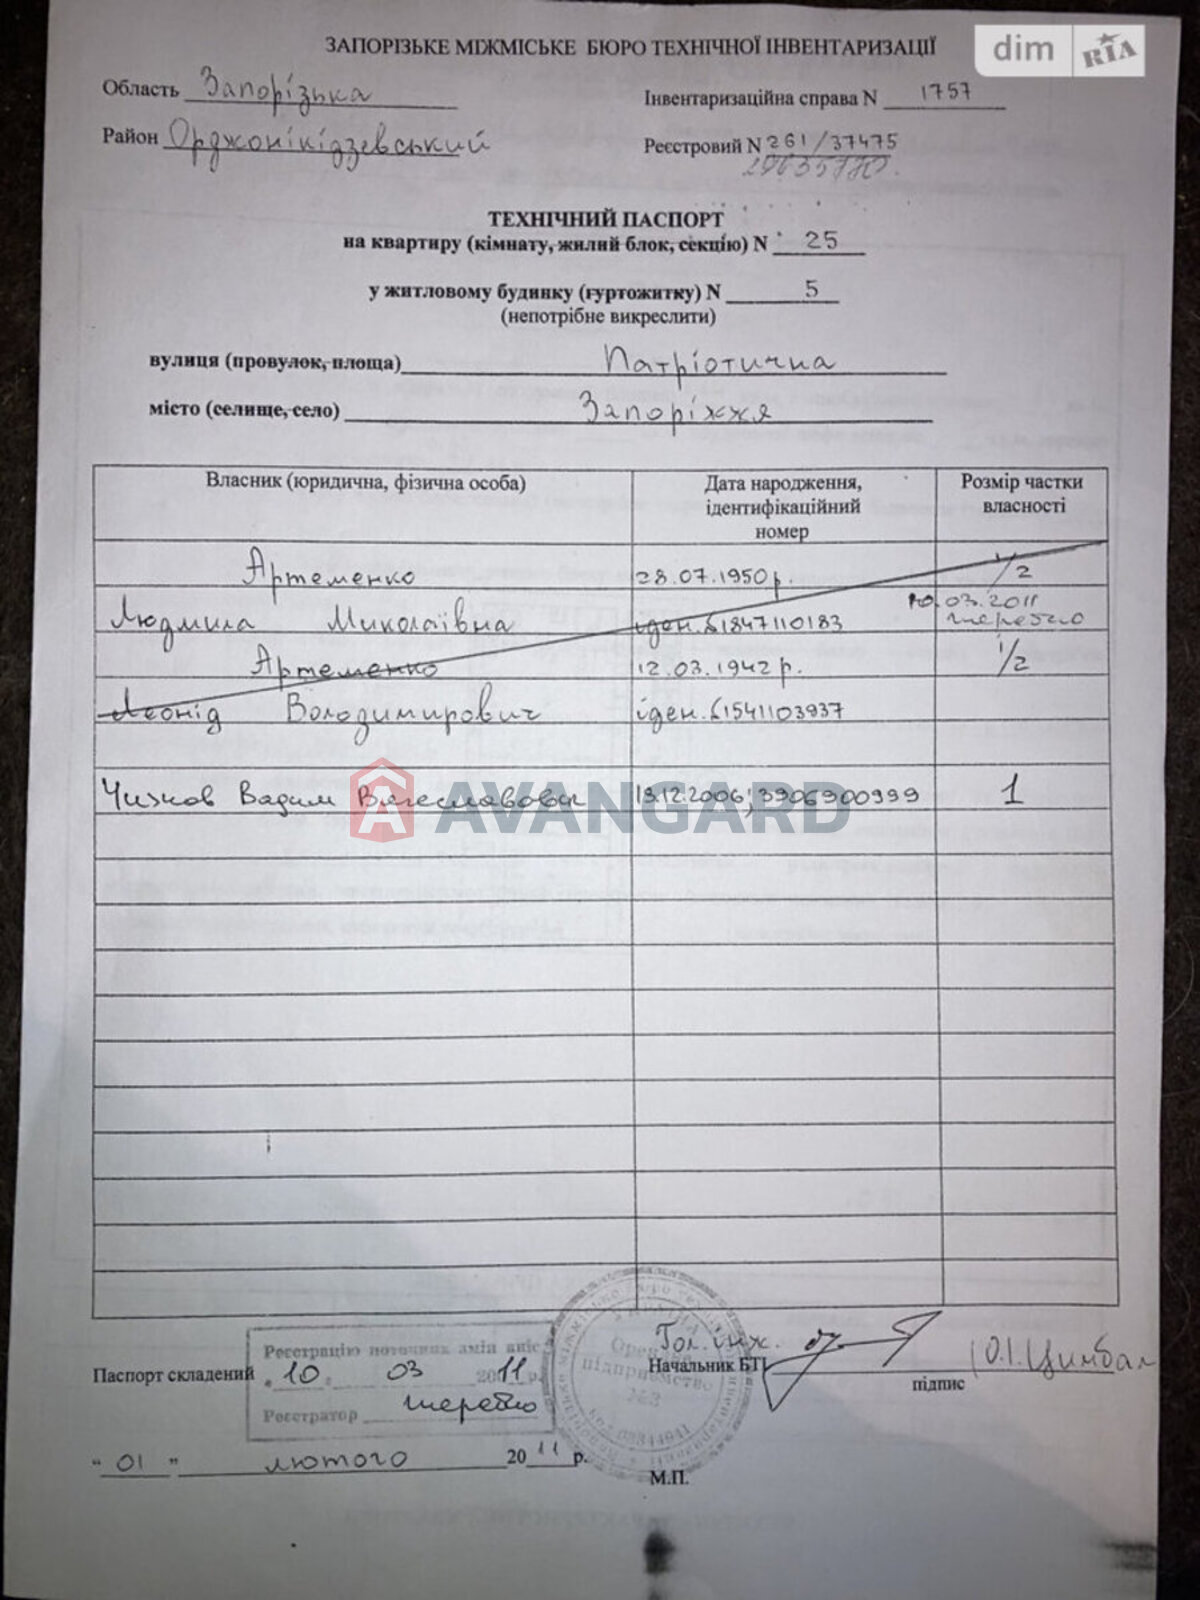 ЗАПОРІЗЬКЕ МІЖМІСЬКЕ БЮРО ТЕХНІЧНОЇ ІНВЕНТАРИЗАЦІЇ
dim RIA
Область Запорізька
Інвентаризаційна справа N 1757
Район Орджонікідзевський
Реєстровий N 261/37475
ТЕХНІЧНИЙ ПАСПОРТ
на квартиру (кімнату, жилий блок, секцію) N 25
у житловому будинку (гуртожитку) N 5
(непотрібне викреслити)
вулиця (провулок, площа) Патріотична
місто (селище, село) Запоріжжя
Власник (юридична, фізична особа)
Дата народження,
ідентифікаційний
номер
Розмір частки
власності
Артеменко 28.07.1950р. 1/2
Людмила Миколаївна іден. 1847110183 10.03.2011
Артеменко 12.03.1942 р. 1/2
Леонід Володимирович іден. 1541103937
Чижов Вадим 19.12.2006; 3906900999 1
AVANGARD
Реєстрацію поточних змін вніс
Паспорт складений
10 03 2011 р.
Реєстратор
Гол. інж.
Начальник БТІ
Ю.І. Цимбал
підпис
"01" лютого 2011 р.
М.П.